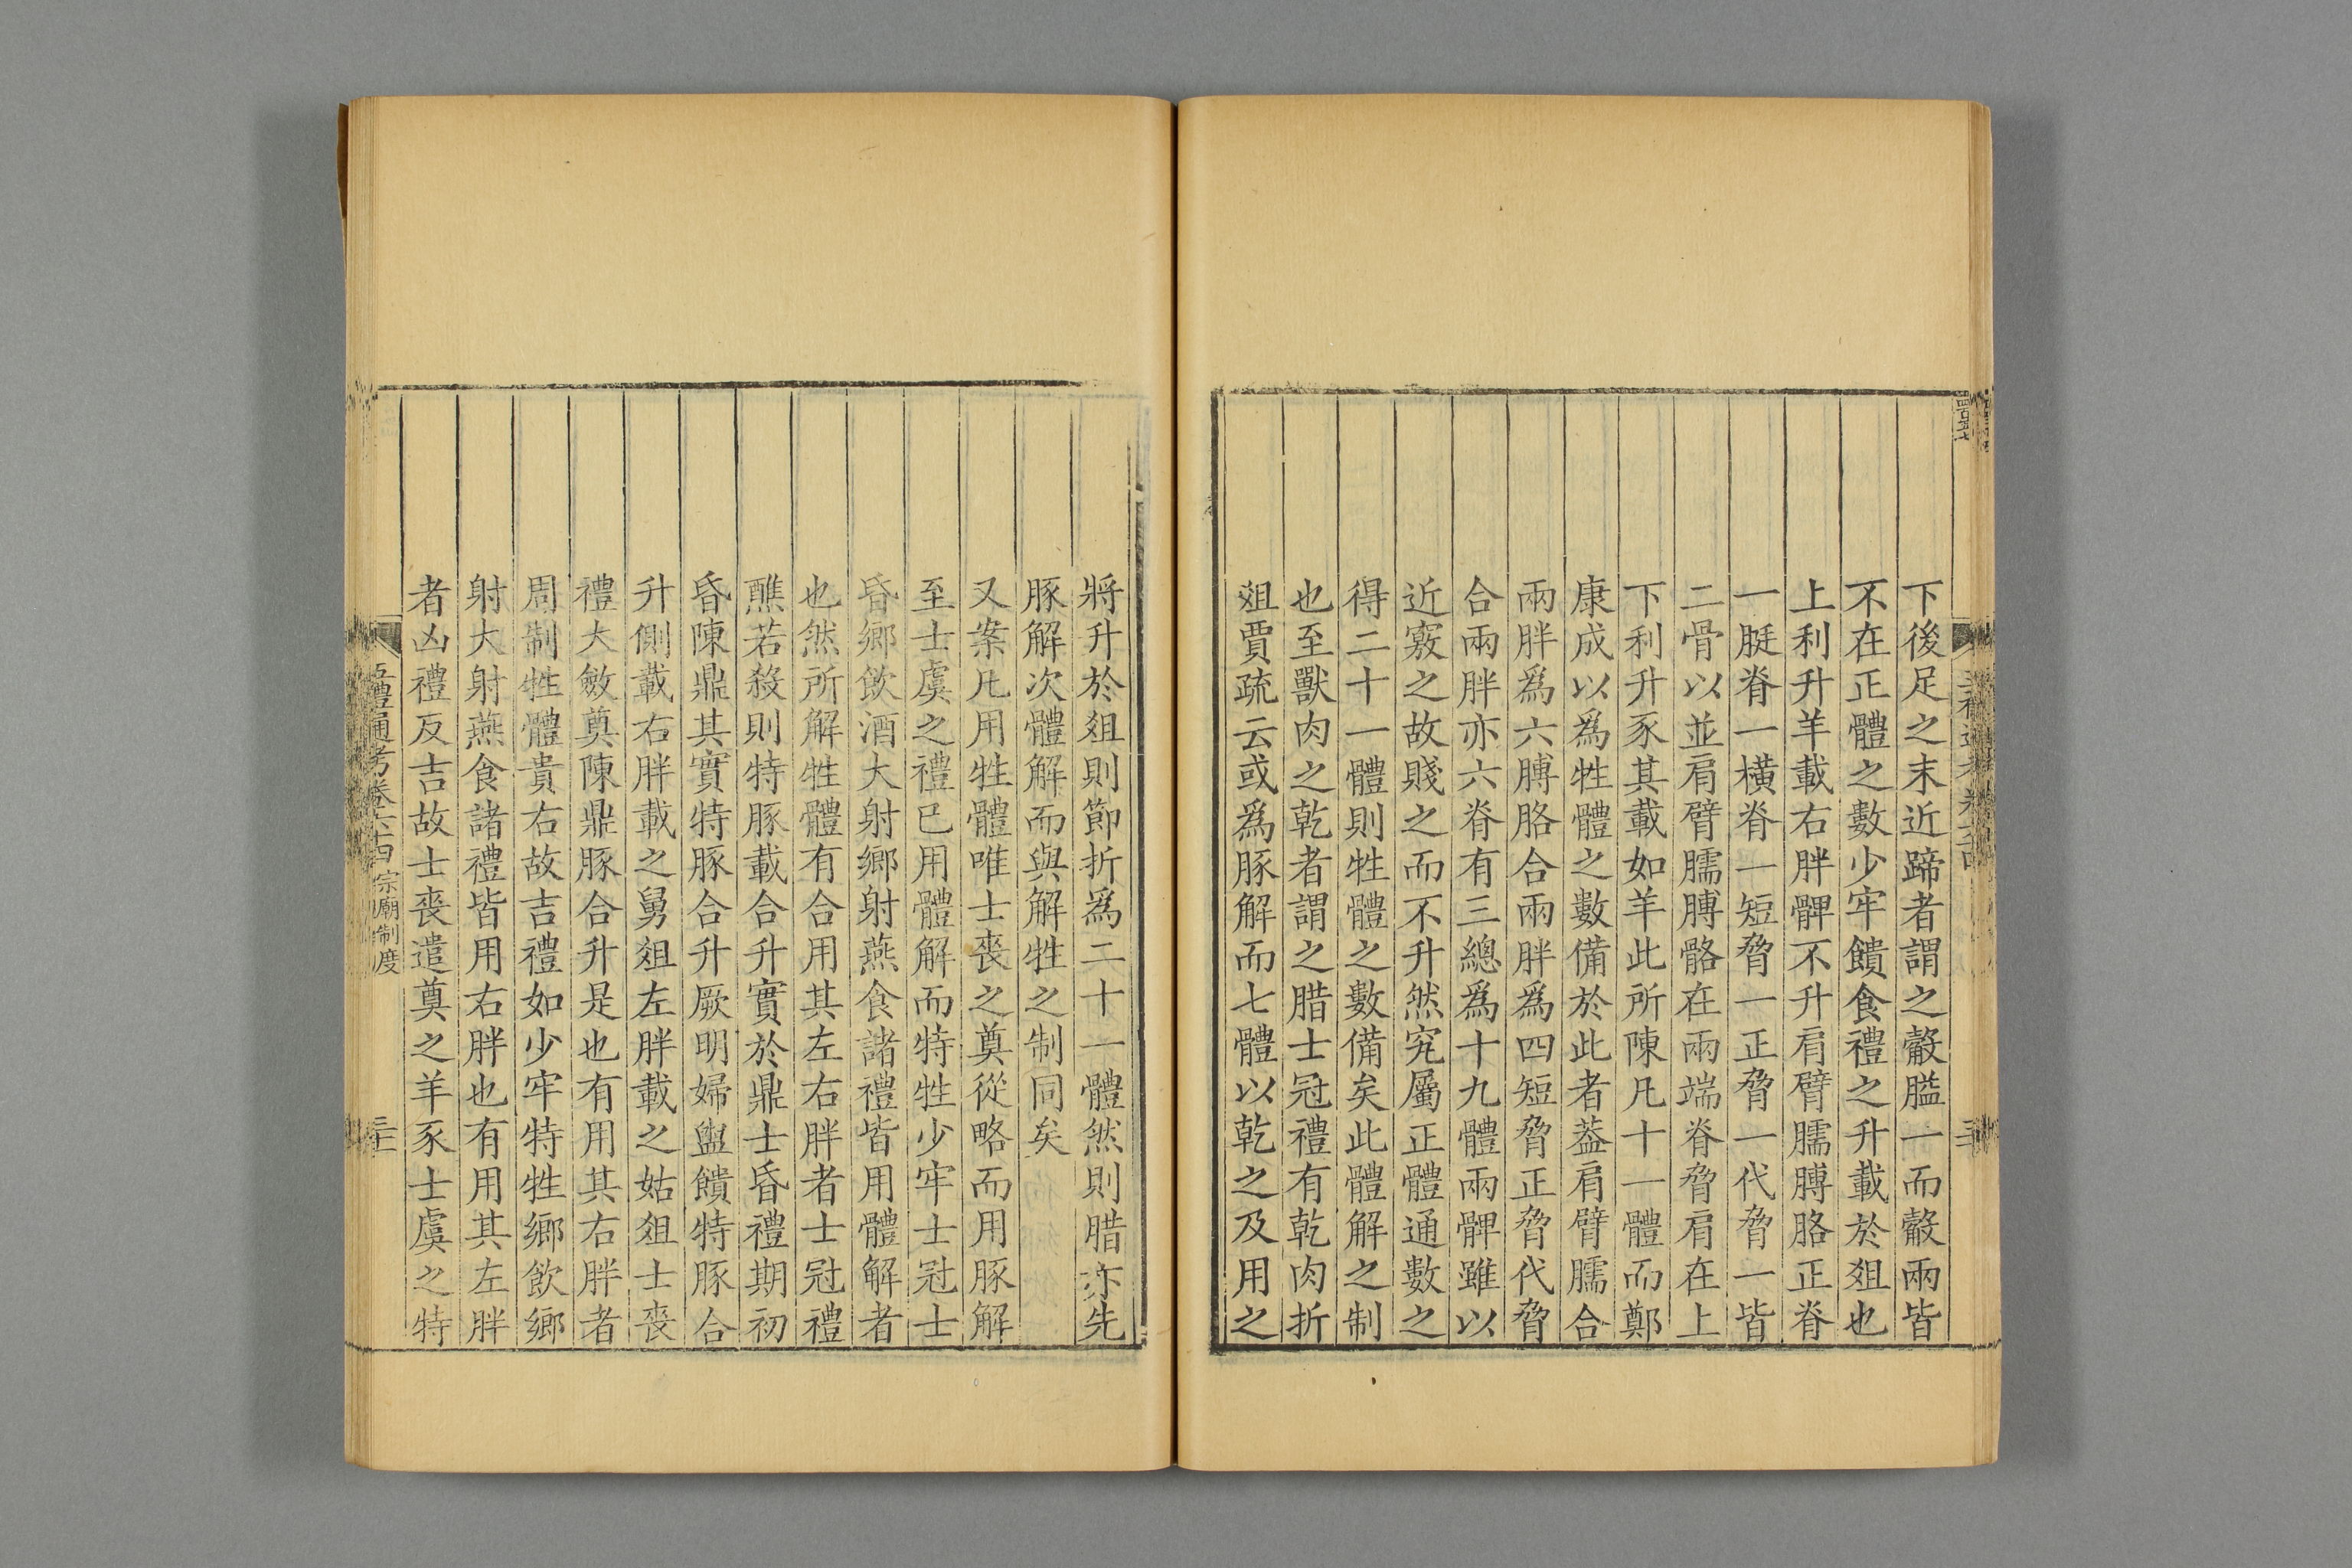 下後足之末近蹄者謂之觳膉一而觳兩皆
不在正體之數少牢饋食禮之升載於俎也
上利升羊載右胖髀不升肩臂臑膊胳正脊
一脡脊一橫脊一短脅一正脅一代脅一皆
二骨以並肩臂臑膊骼在兩端脊脅肩在上
下利升豕其載如羊此所陳凡十一體而鄭
康成以爲牲體之數備於此者葢肩臂臑合
兩胖爲六膊胳合兩胖爲四短脅正脅代脅
合兩胖亦六脊有三總爲十九體兩髀雖以
近竅之故賤之而不升然究屬正體通數之
得二十一體則牲體之數備矣此體解之制
也至獸肉之乾者謂之腊士冠禮有乾肉折
俎賈疏云或爲豚解而七體以乾之及用之
將升於俎則節折爲二十一體然則腊亦先
豚解次體解而與解牲之制同矣
又案凡用牲體唯士喪之奠從略而用豚解
至士虞之禮已用體解而特牲少牢士冠士
昏鄉飲酒大射鄉射燕食諸禮皆用體解者
也然所解牲體有合用其左右胖者士冠禮
醮若殺則特豚載合升實於鼎士昏禮期初
昏陳鼎其實特豚合升厥明婦盥饋特豚合
升側載右胖載之舅俎左胖載之姑俎士喪
禮大斂奠陳鼎豚合升是也有用其右胖者
周制牲體貴右故吉禮如少牢特牲鄉飲鄉
射大射燕食諸禮皆用右胖也有用其左胖
者凶禮反吉故士喪遣奠之羊豕士虞之特
五禮通考卷六十四 宗廟制度